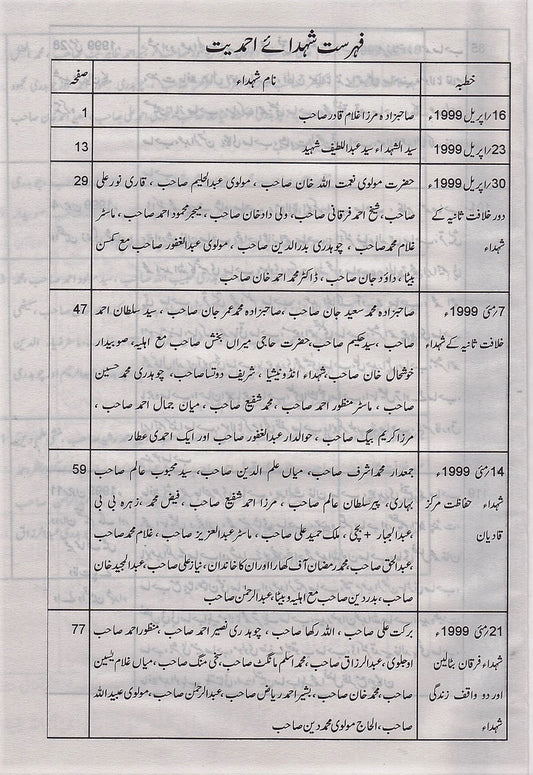 فہرست شہدائے احمدیت
خطبہ نام شہداء صفحہ
16/اپریل 1999ء صاحبزادہ مرزا غلام قادر صاحب 1
23/اپریل 1999 سید الشہداء سید عبداللطیف شہید 13
30/اپریل 1999ء حضرت مولوی نعمت اللہ خان صاحب ، مولوی عبدالحلیم صاحب ، قاری نور علی 29
دور خلافت ثانیہ کے صاحب، شیخ احمد فرقانی صاحب، ولی داد خان صاحب ، میجر محمود احمد صاحب ، ماسٹر
شہداء غلام محمد صاحب ، چوہدری بدرالدین صاحب ، مولوی عبدالغفور صاحب مع کمسن
بیٹا ، داؤد جان صاحب ، ڈاکٹر محمد احمد خان صاحب
7/مئی 1999ء صاحبزادہ محمد سعید جان صاحب ،صاحبزادہ محمد عمر جان صاحب ، سید سلطان احمد 47
خلافت ثانیہ کے شہداء صاحب ،سید حکیم صاحب،حضرت حاجی میراں بخش صاحب مع اہلیہ، صوبیدار
خوشحال خان صاحب،شہداء انڈونیشیا ، شریف دوتسا صاحب، چوہدری محمد حسین
صاحب ، ماسٹر منظور احمد صاحب ، محمد شفیع صاحب ، میاں جمال احمد صاحب ،
مرزا کریم بیگ صاحب ، حوالدار عبدالغفور صاحب اور ایک احمدی عطار
14/مئی 1999ء جمعدار محمد اشرف صاحب، میاں علم الدین صاحب، سید محبوب عالم صاحب 59
شہداء حفاظت مرکز بہاری، پیر سلطان عالم صاحب ، مرزا احمد شفیع صاحب ، فیض محمد، زہرہ بی بی
قادیان ،عبدالجبار + بچی ، ملک حمید علی صاحب ، ماسٹر عبدالعزیز صاحب ، غلام محمد صاحب
،عبدالحق صاحب،محمد رمضان آف کھارا اور ان کا خاندان، نیاز علی صاحب،عبدالمجید خان
صاحب،بدر دین صاحب مع اہلیہ و بیٹا،عبدالرحمٰن صاحب
21/مئی 1999ء برکت علی صاحب ، اللہ رکھا صاحب ، چوہدری نصیر احمد صاحب ،منظور احمد صاحب 77
شہداء فرقان بٹالین اوجلوی،عبدالرزاق صاحب،محمد اسلم مانگٹ صاحب،سخی منگ صاحب،میاں غلام یٰسین
اور دو واقف زندگی صاحب،محمد خان صاحب ، بشیر احمد ریاض صاحب، عبدالرحمٰن صاحب ،مولوی عبید اللہ
شہداء صاحب،الحاج مولوی محمد دین صاحب